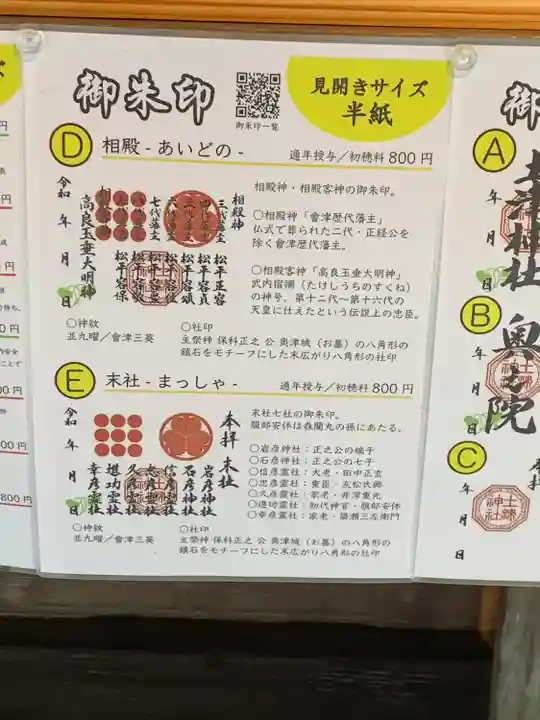 御朱印
御朱印一覧
見開きサイズ
半紙
D 相殿 - あいどの -
通年授与／初穂料 800 円
相殿神
三代藩主 松平正容
四代藩主 松平容貞
松平容頌
六代藩主 松平容住
七代藩主 松平容衆
松平容敬
松平容保
高良玉垂大明神
令和 年 月 日
相殿神・相殿客神の御朱印。
〇相殿神「會津歴代藩主」
仏式で葬られた二代・正経公を
除く會津歴代藩主。
〇相殿客神「高良玉垂大明神」
武内宿禰（たけしうちのすくね）
の神号。第十二代～第十六代の
天皇に仕えたという伝説上の忠臣。
〇神紋
並九曜／會津三葵
〇社印
主祭神 保科正之 公 奥津城（お墓）の八角形の
鎮石をモチーフにした末広がり八角形の社印
E 末社 - まっしゃ -
通年授与／初穂料 800 円
本拝 末社
岩彦神社
石彦神社
信彦霊社
忠彦霊社
久彦霊社
堪功霊社
幸彦霊社
令和 年 月 日
末社七社の御朱印。
服部安休は森蘭丸の孫にあたる。
〇岩彦神社：正之公の嫡子
〇石彦神社：正之公の七子
〇信彦霊社：大老・田中正玄
〇忠彦霊社：重臣・友松氏興
〇久彦霊社：家老・井深重光
〇幸彦霊社：家老・簗瀬三左衛門
〇神紋
並九曜／會津三葵
〇社印
主祭神 保科正之 公 奥津城（お墓）の八角形の
鎮石をモチーフにした末広がり八角形の社印
御
A
土津神社
年
月
日
B
奥之院
年
月
日
C
年
月
日
800 円